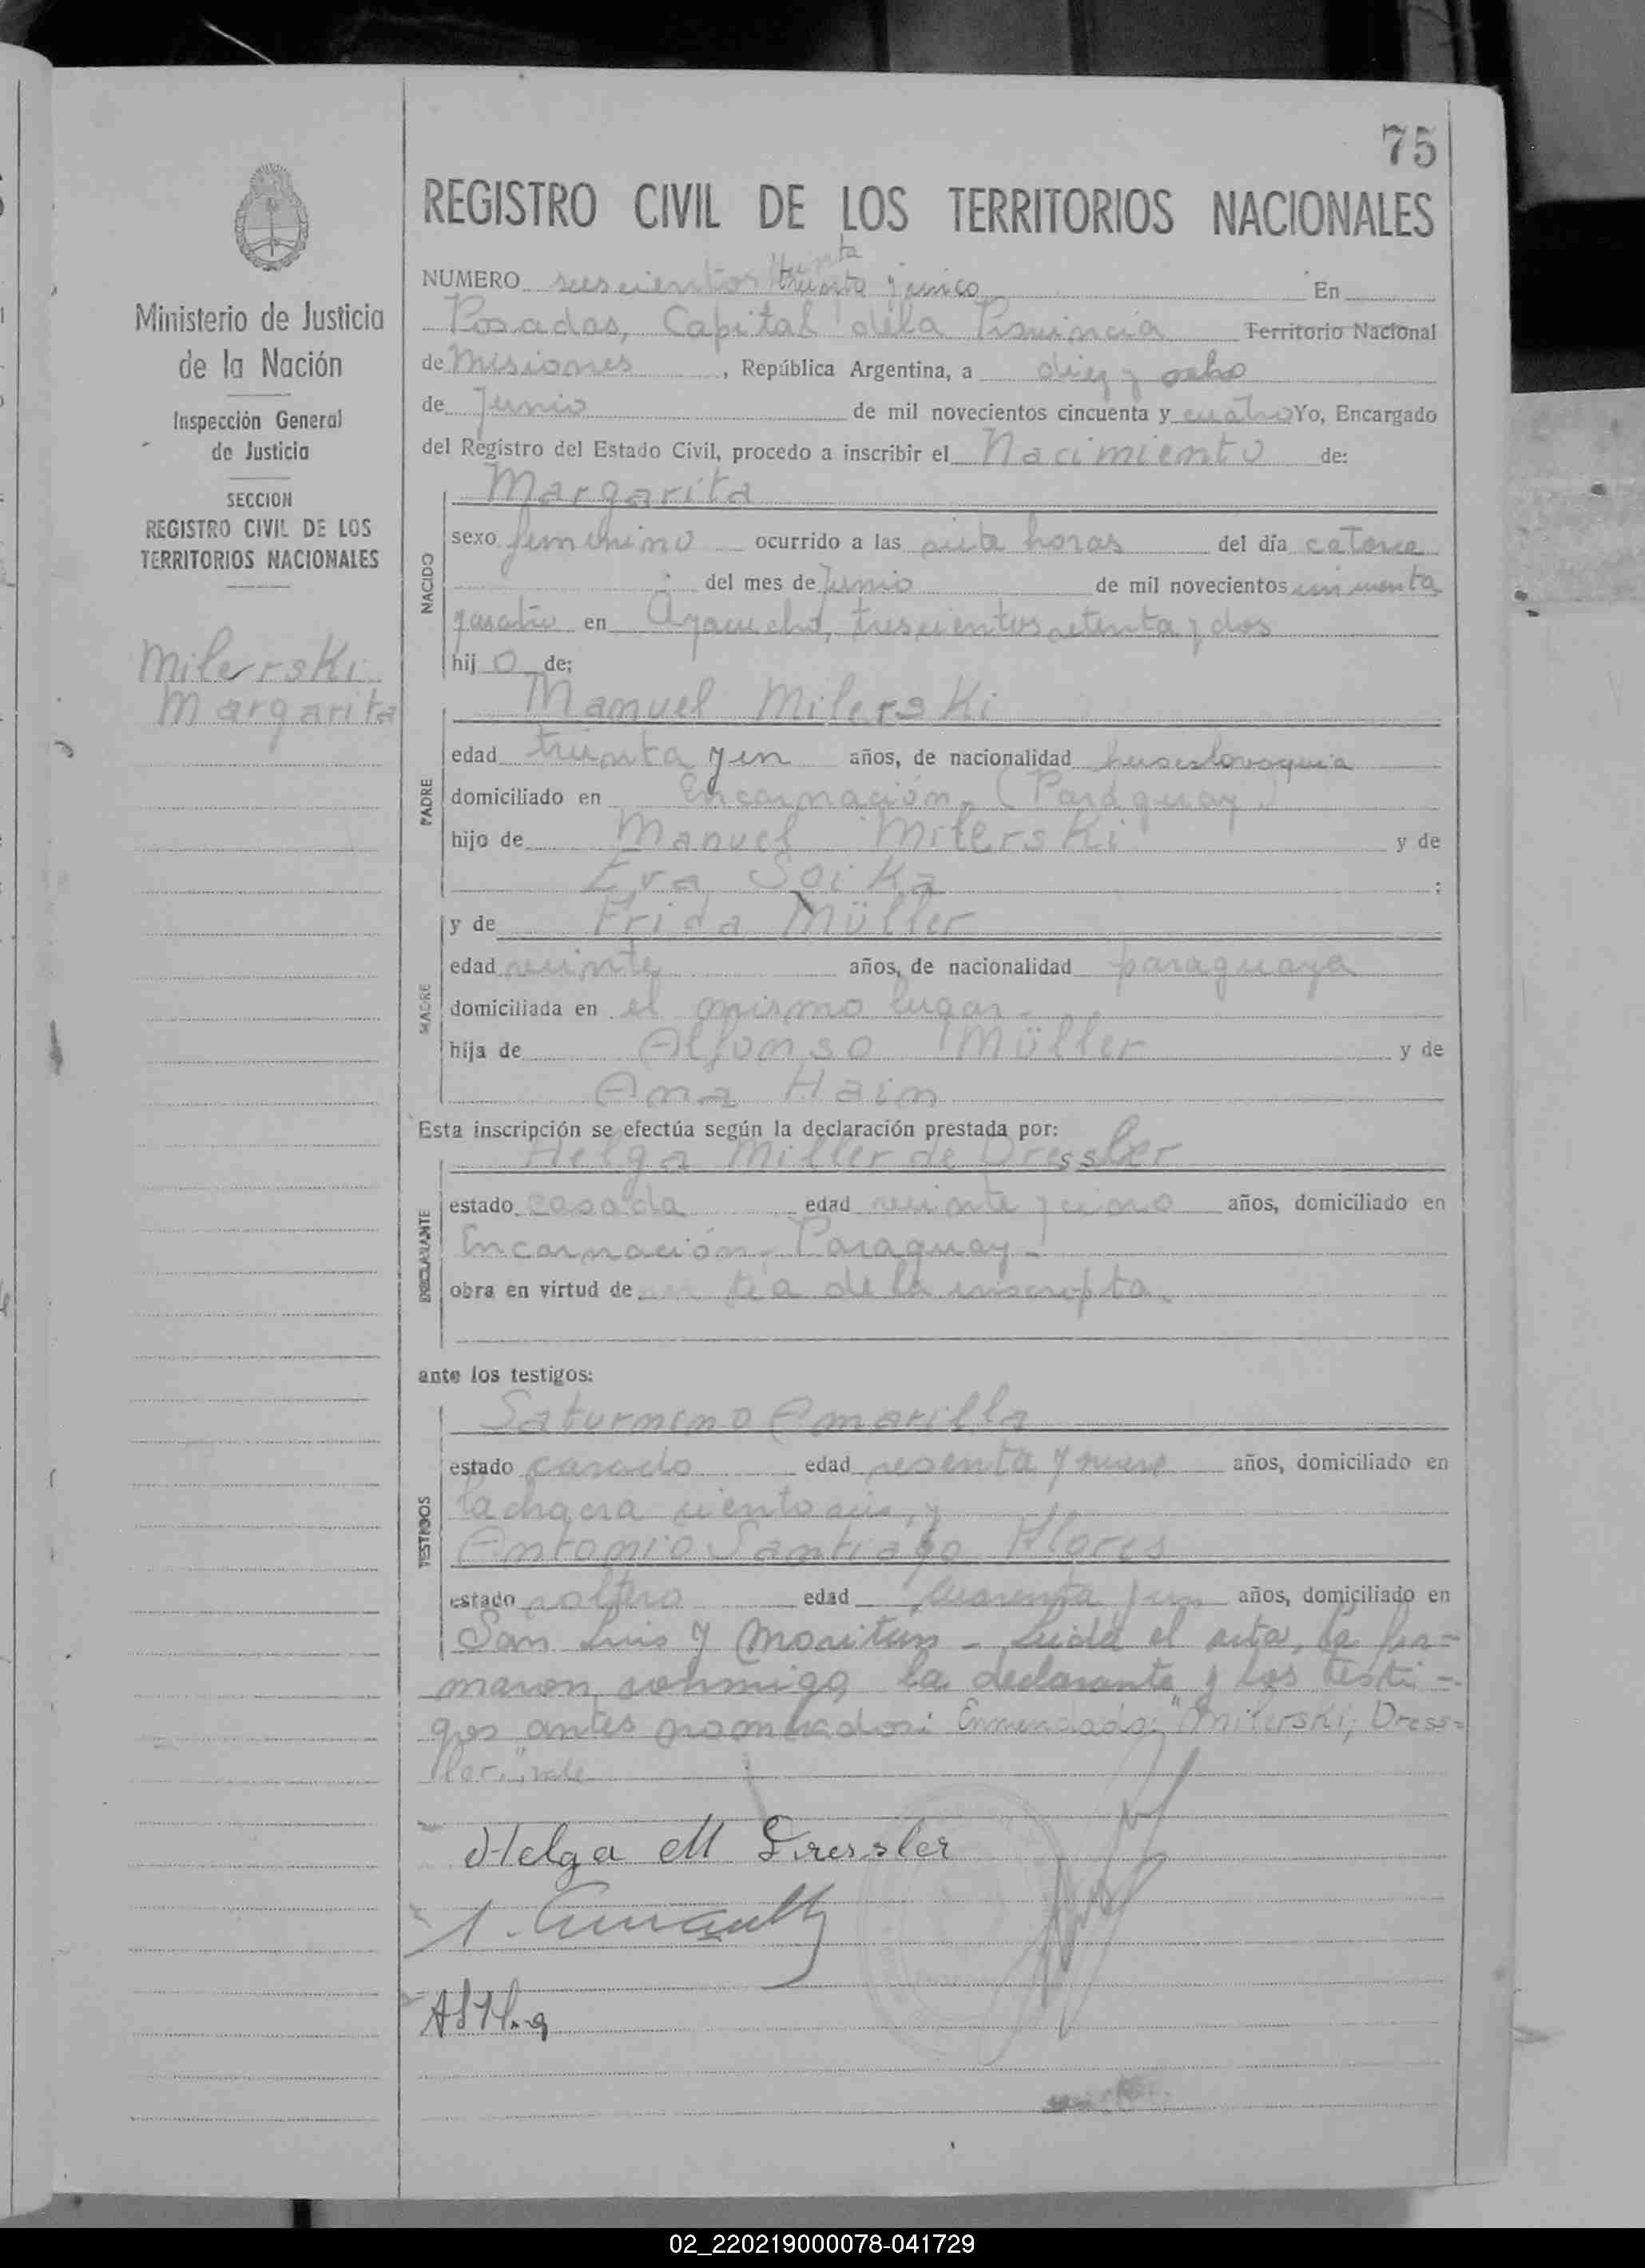 75
REGISTRO CIVIL DE LOS TERRITORIOS NACIONALES
Ministerio de Justicia
de la Nación
Inspección General
de Justicia
SECCION
REGISTRO CIVIL DE LOS
TERRITORIOS NACIONALES
Milerski
Margarita
NUMERO seiscientos treinta y cinco En
Posadas, Capital de la Provincia Territorio Nacional
de Misiones, República Argentina, a diez y ocho
de Junio de mil novecientos cincuenta y cuatro Yo, Encargado
del Registro del Estado Civil, procedo a inscribir el Nacimiento de:
NACIDO
Margarita
sexo femenino ocurrido a las siete horas del día catorce
del mes de Junio de mil novecientos cincuenta
y cuatro en Ayacucho, trescientos setenta y dos
hij o de:
PADRE
Manuel Milerski
edad treinta y un años, de nacionalidad
domiciliado en Encarnación, (Paraguay)
hijo de Manuel Milerski y de
Eva Soika ;
MADRE
y de Frida Müller
edad veinte años, de nacionalidad paraguaya
domiciliada en el mismo lugar.
hija de Alfonso Müller y de
Ana Hain
Esta inscripción se efectúa según la declaración prestada por:
DECLARANTE
Helga Miller de Dressler
estado casada edad veinte y cinco años, domiciliado en
Encarnación - Paraguay -
obra en virtud de tía de la inscripta.
ante los testigos:
TESTIGOS
Saturnino Amarilla
estado casado edad sesenta y nueve años, domiciliado en
la chacra ciento seis, y
Antonio Santiago Flores
estado soltero edad cuarenta y un años, domiciliado en
San Luis y Moritan - Leída el acta, la fir=
maron conmigo la declarante y los testi=
gos antes nombrados: Enmendado: "Milerski, Dress=
ler", vale
Helga M Dressler
02_220219000078-041729